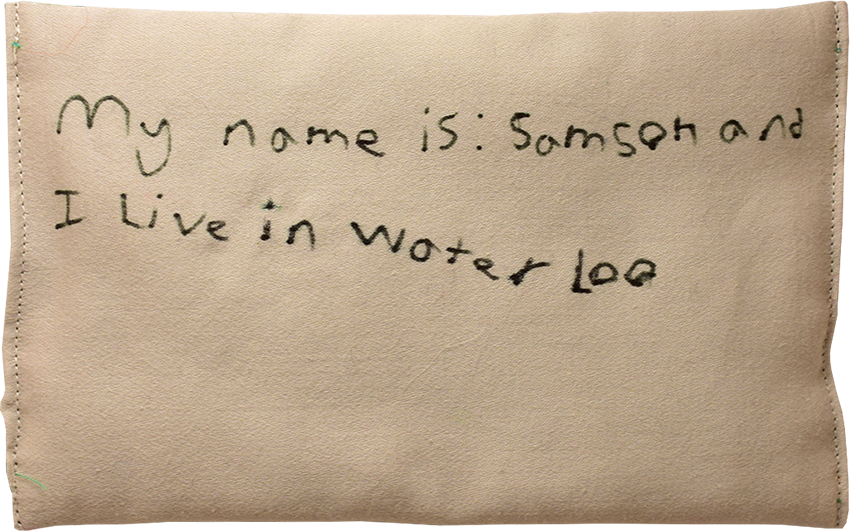 My name is: Samson and
I Live in Water Loo